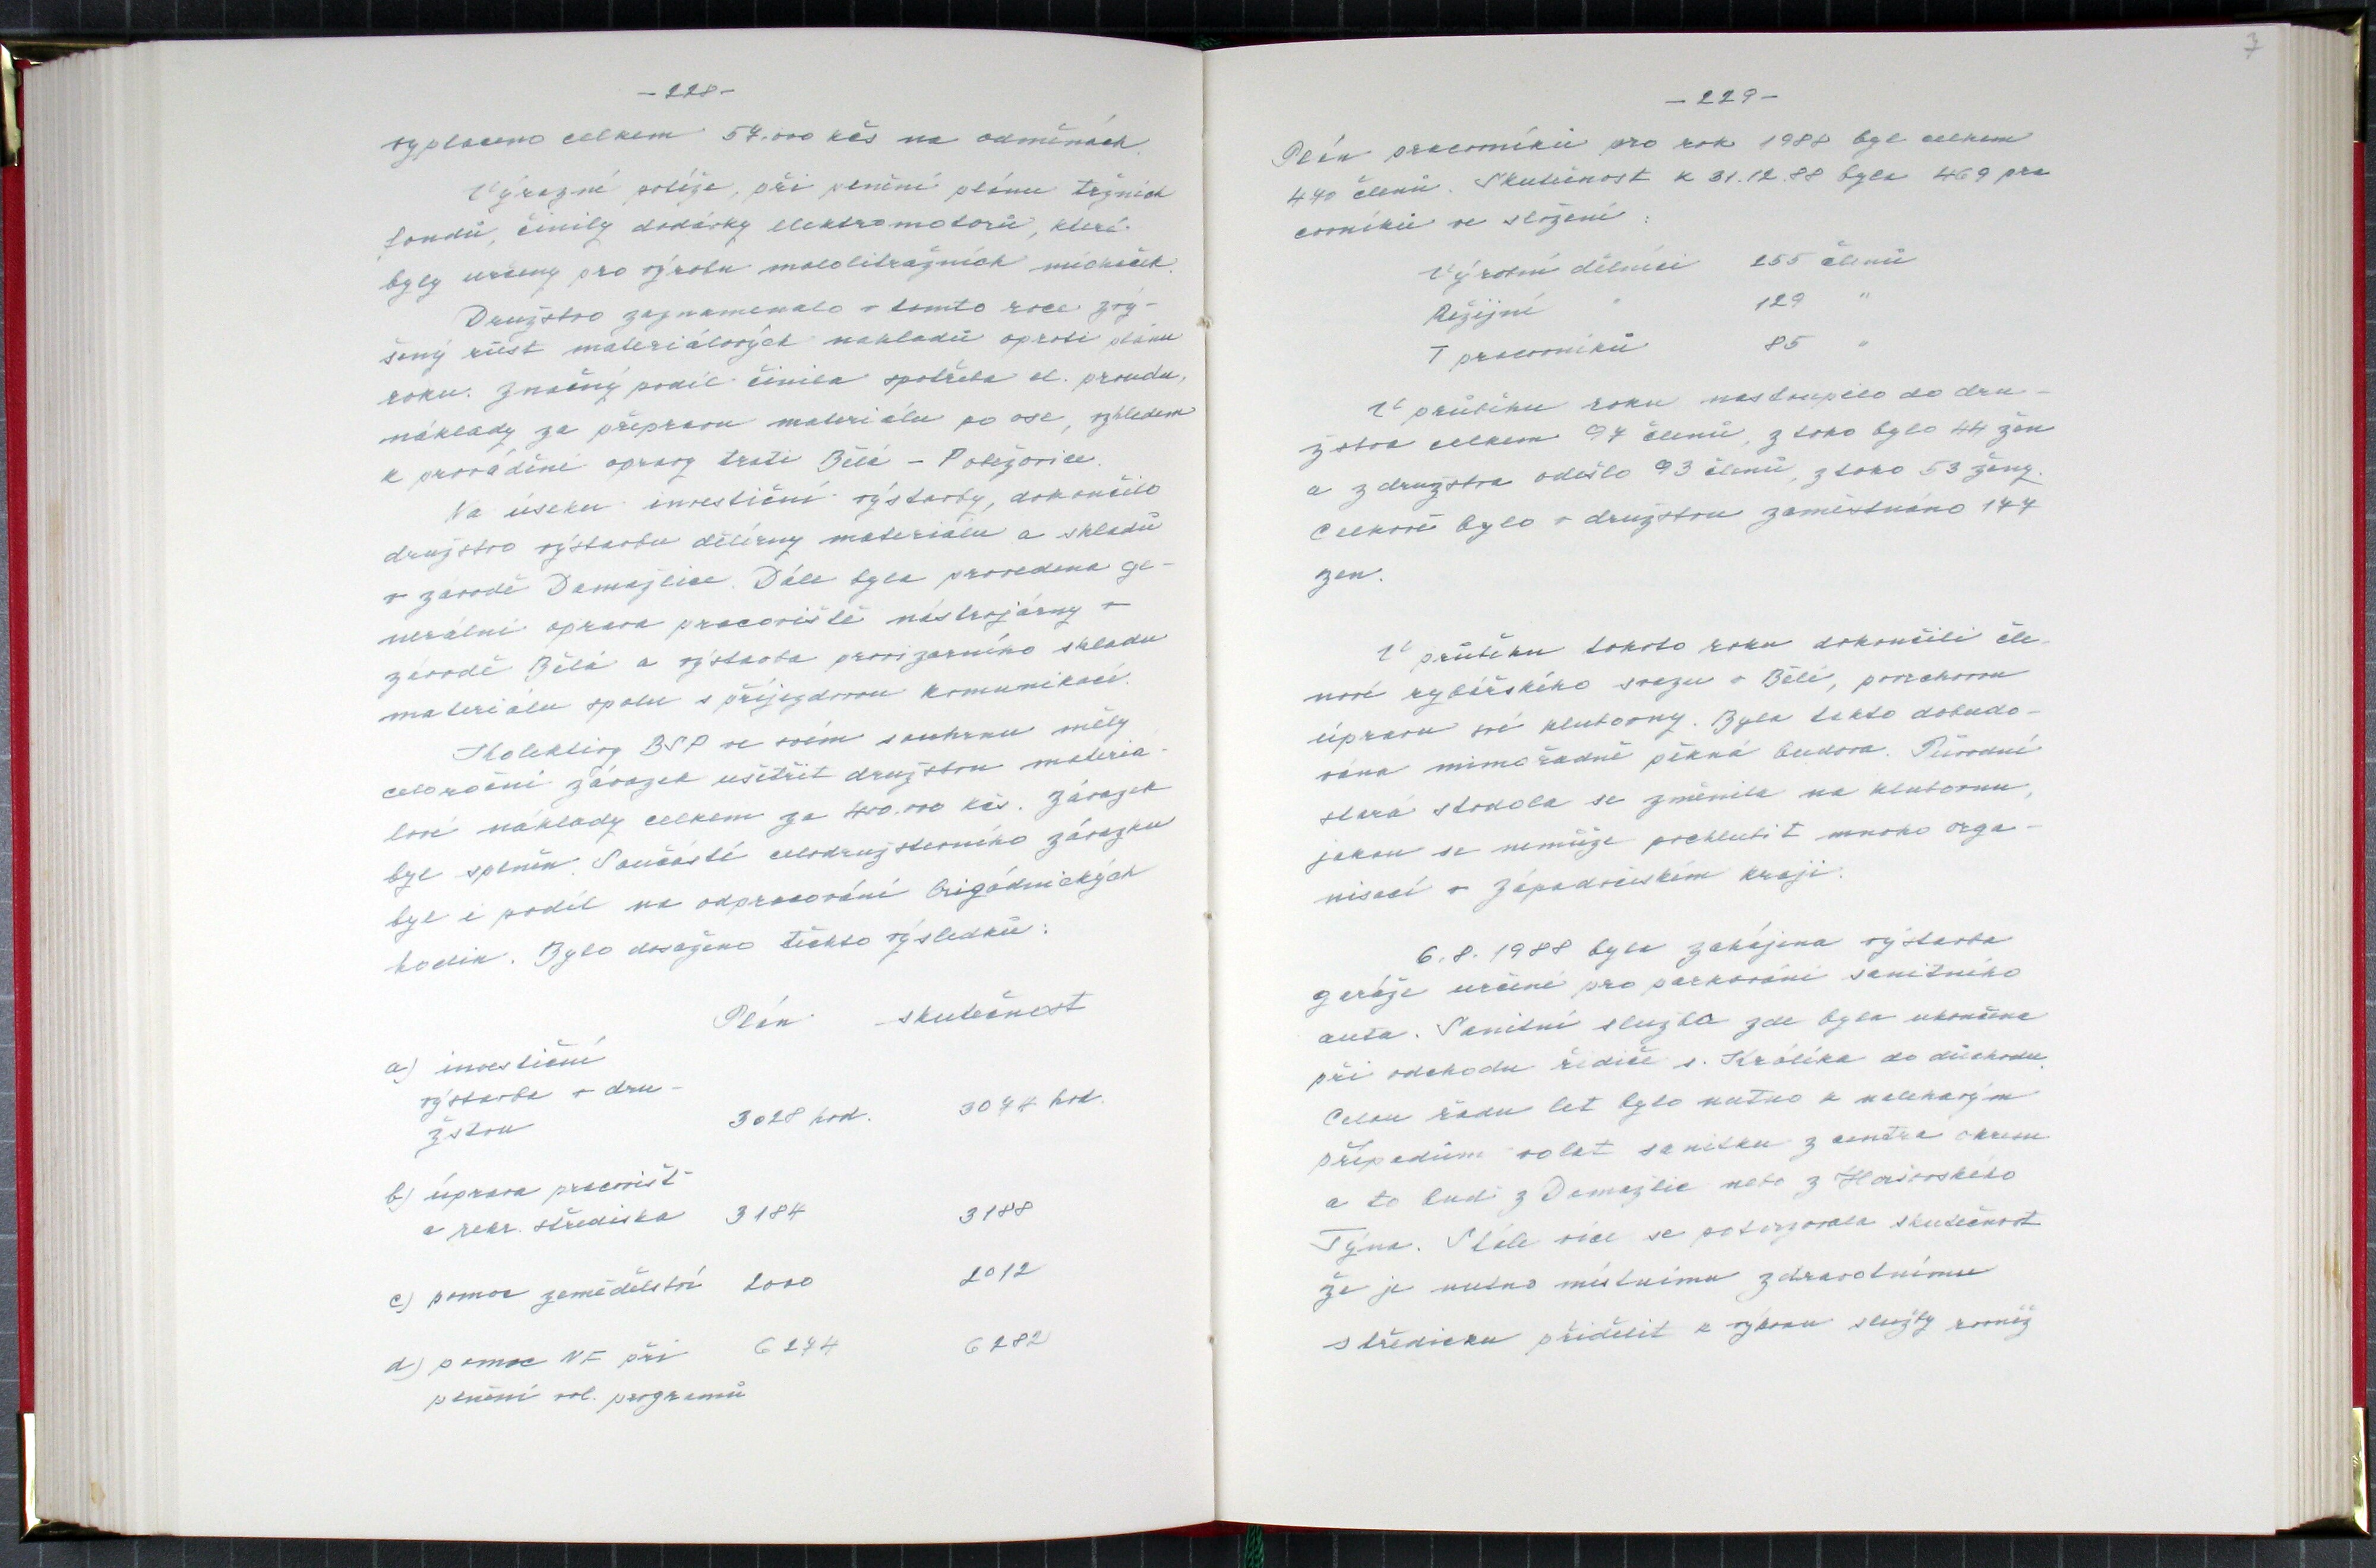 - 228 -
vyplaceno celkem 57.000 kčs na odměnách.
Výrazné potíže, při plnění plánu tržních
fondů, činily dodávky elektromotorů, které
byly určeny pro výrobu malolitrážních míchaček.
Družstvo zaznamenalo v tomto roce zvý-
šený růst materiálových nákladů oproti plánu
roku. Značný podíl činila spotřeba el. proudu,
náklady za přepravu materiálu po ose, vzhledem
k provádění opravy trati Bělá - Poběžovice.
Na úseku investiční výstavby, dokončilo
družstvo výstavbu dělírny materiálu a skladů
v závodě Domažlice. Dále byla provedena ge-
nerální oprava pracoviště nástrojárny v
závodě Bělá a výstavba provizorního skladu
materiálu spolu s příjezdovou komunikací.
Kolektivy BSP ve svém souhrnu měly
celoroční závazek ušetřit družstvu materiá-
lové náklady celkem za 400.000 kčs. Závazek
byl splněn. Součástí celodružstevního závazku
byl i podíl na odpracování brigádnických
hodin. Bylo dosaženo těchto výsledků:
Plán skutečnost
a) investiční
výstavba v dru-
žstvu 3028 hod. 3074 hod.
b) úprava pracovišť
a rekr. střediska 3184 3188
c) pomoc zemědělství 2000 2012
d) pomoc NF při 6274 6282
plnění vol. programů
7
- 229 -
Plán pracovníků pro rok 1988 byl celkem
470 členů. Skutečnost k 31.12.88 byla 469 pra
covníků ve složení:
Výrobní dělníci 255 členů
Režijní " 129 "
T pracovníků 85 "
V průběhu roku nastoupilo do dru-
žstva celkem 97 členů, z toho bylo 44 žen
a z družstva odešlo 93 členů, z toho 53 ženy.
Celkově bylo v družstvu zaměstnáno 177
žen.
V průběhu tohoto roku dokončili čle-
nové rybářského svazu v Bělé, povrchovou
úpravu své klubovny. Byla takto dobudo-
vána mimořádně pěkná budova. Původní
stará stodola se změnila na klubovnu,
jakou se nemůže pochlubit mnoho orga-
nisací v Západočeském kraji.
6.8.1988 byla zahájena výstavba
garáže určené pro parkování sanitního
auta. Sanitní služba zde byla ukončena
při odchodu řidiče s. Králíka do důchodu.
Celou řadu let bylo nutno k naléhavým
případům volat sanitku z centra okresu
a to buď z Domažlic nebo z Horšovského
Týna. Stále více se potvrzovala skutečnost
že je nutno místnímu zdravotnímu
středisku přidělit k výkonu služby rovněž